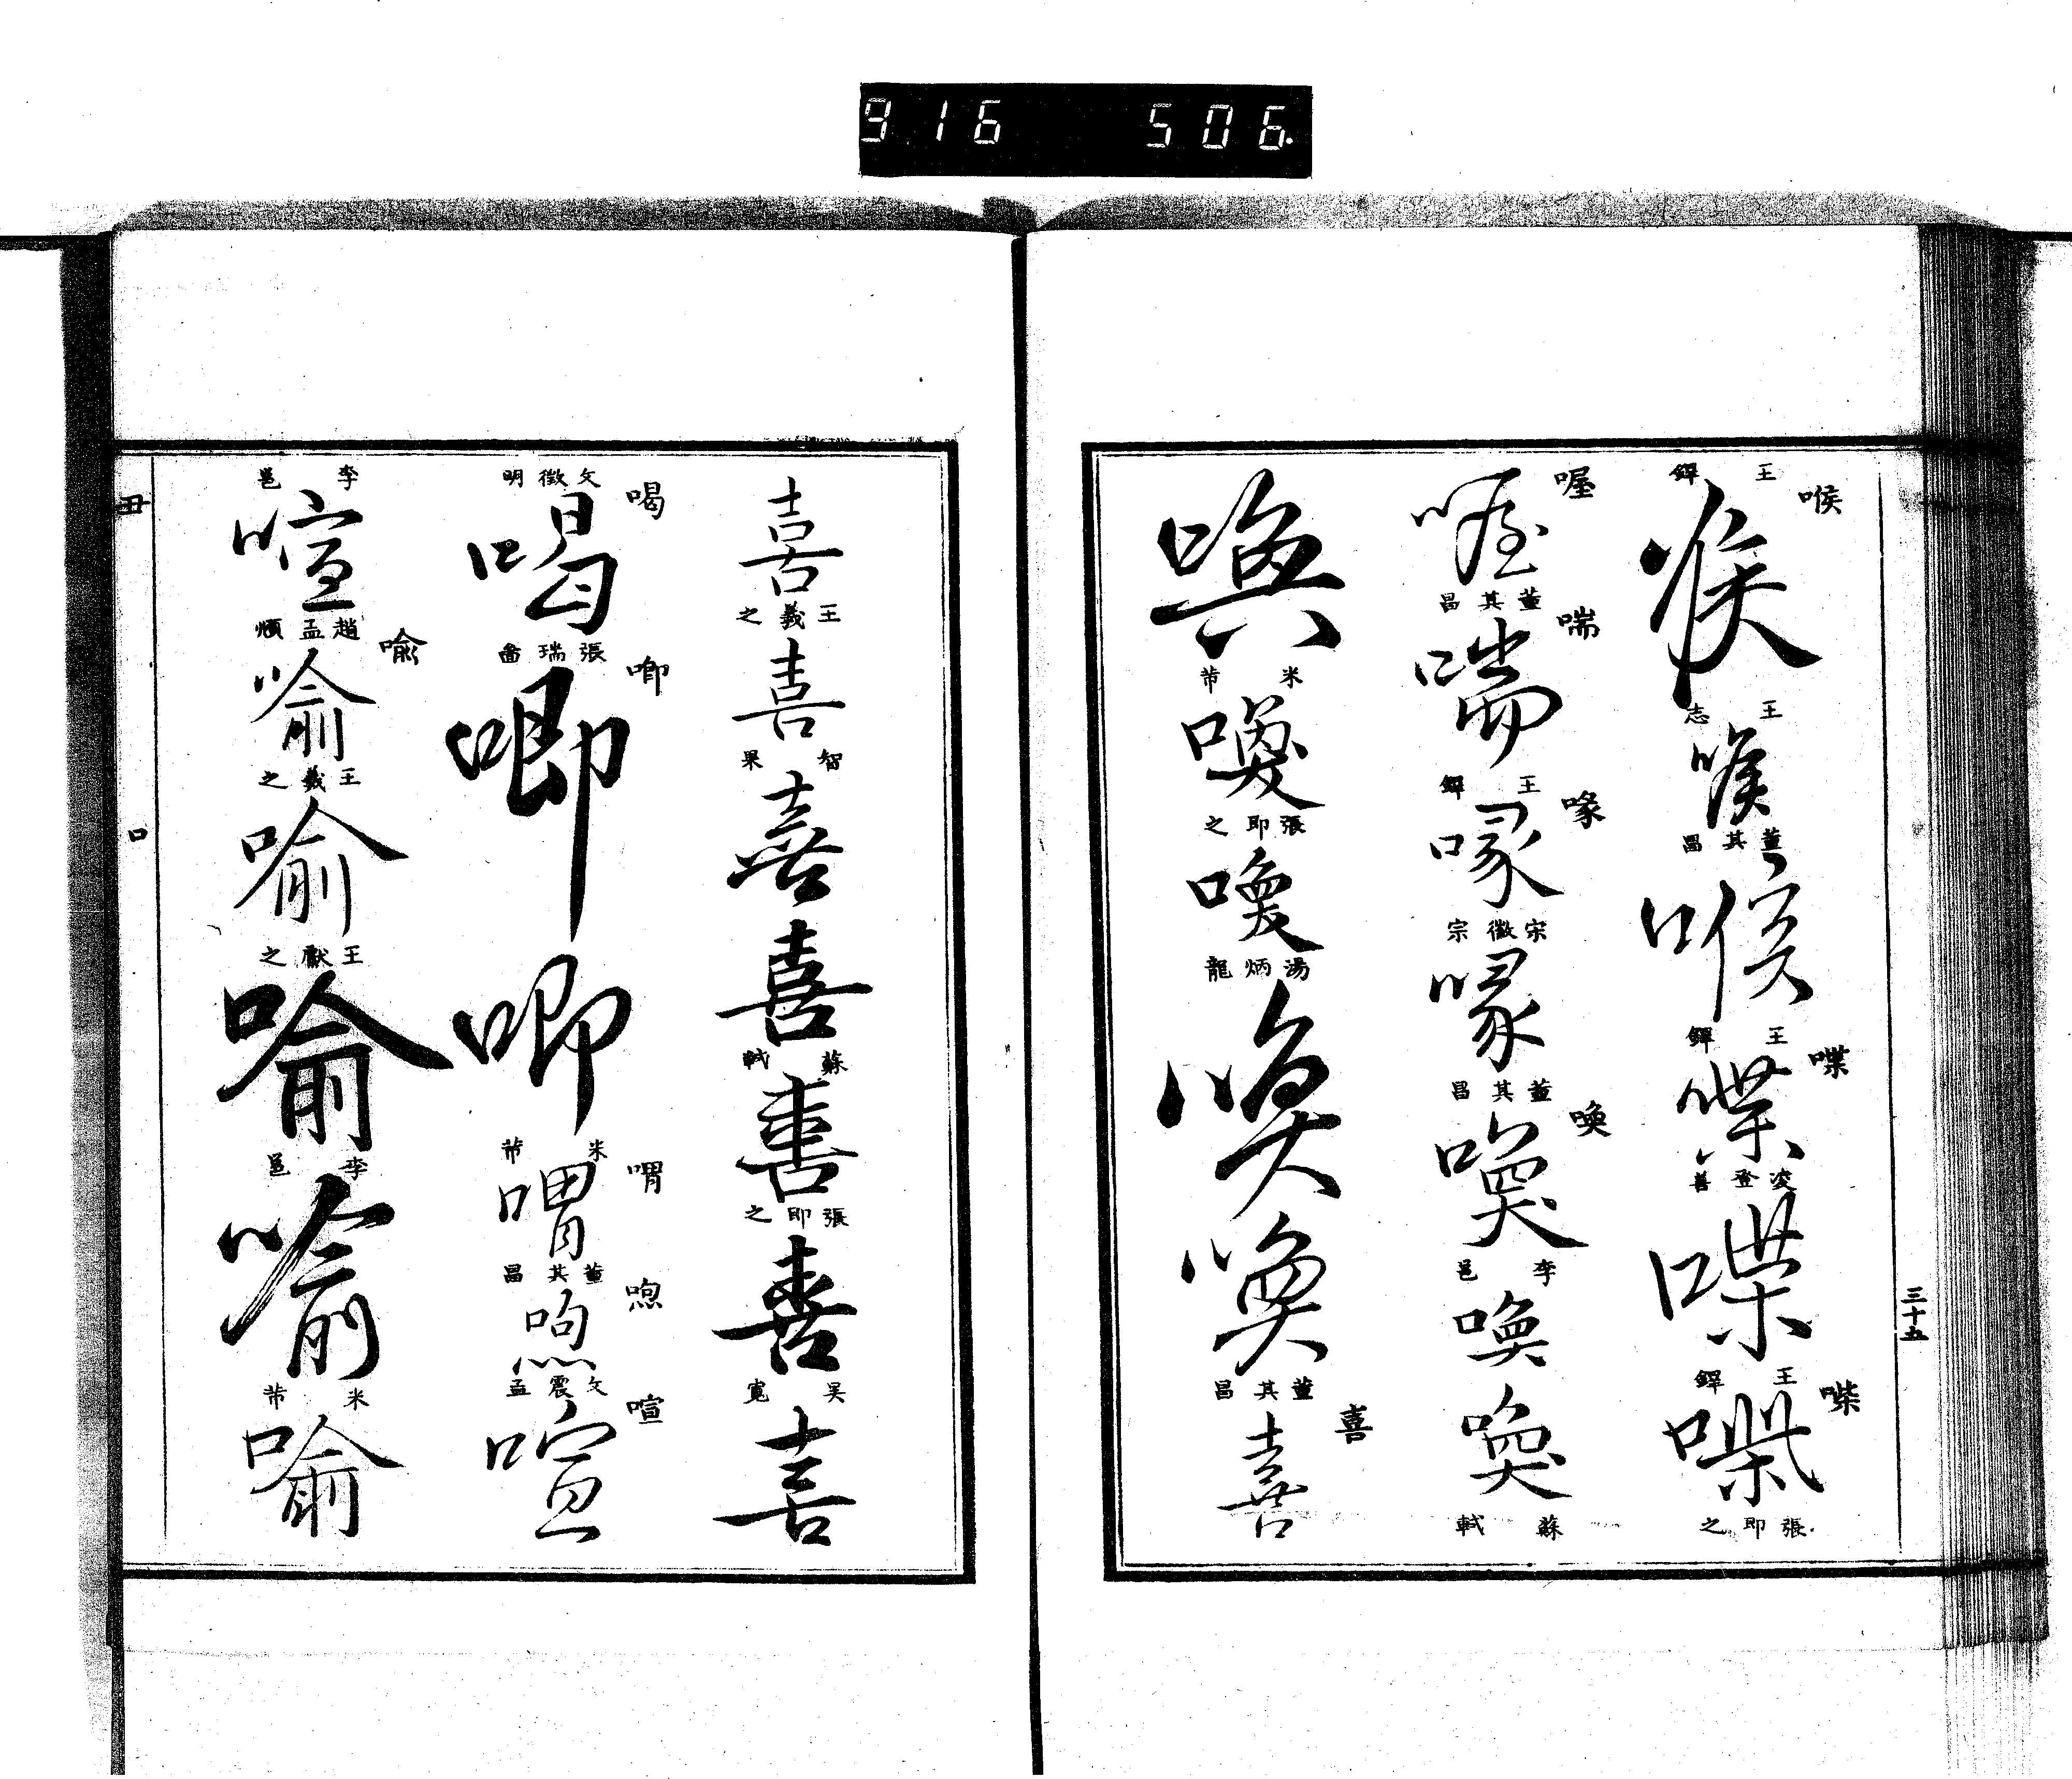 916 506.
三十五
喉
王鐸
喉
王志
喉
董其昌
喉
喋
王鐸
喋
登善
喋
喍
王鐸
喍
張即之
喔
喔
董其昌
喘
喘
王鐸
喙
喙
宋徽宗
喙
董其昌
喚
喚
李邕
喚
喚
蘇軾
喚
米芾
喚
張即之
喚
湯炳龍
喚
喚
董其昌
喜
喜
喜
王羲之
喜
智果
喜
喜
蘇軾
喜
張即之
喜
吳寬
喜
喝
文徵明
喝
張瑞啚
喞
喞
喞
米芾
喟
喟
董其昌
喣
文震孟
喧
喧
李邕
喧
趙孟頫
喻
喻
王羲之
喻
王獻之
喻
李邕
喻
米芾
喻
丑
口